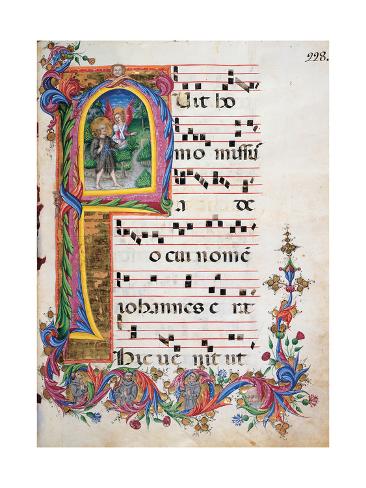 228.
Fuit ho
mo missus
a de
o cui nomē
iohannes e rat
Hic ue nit ut